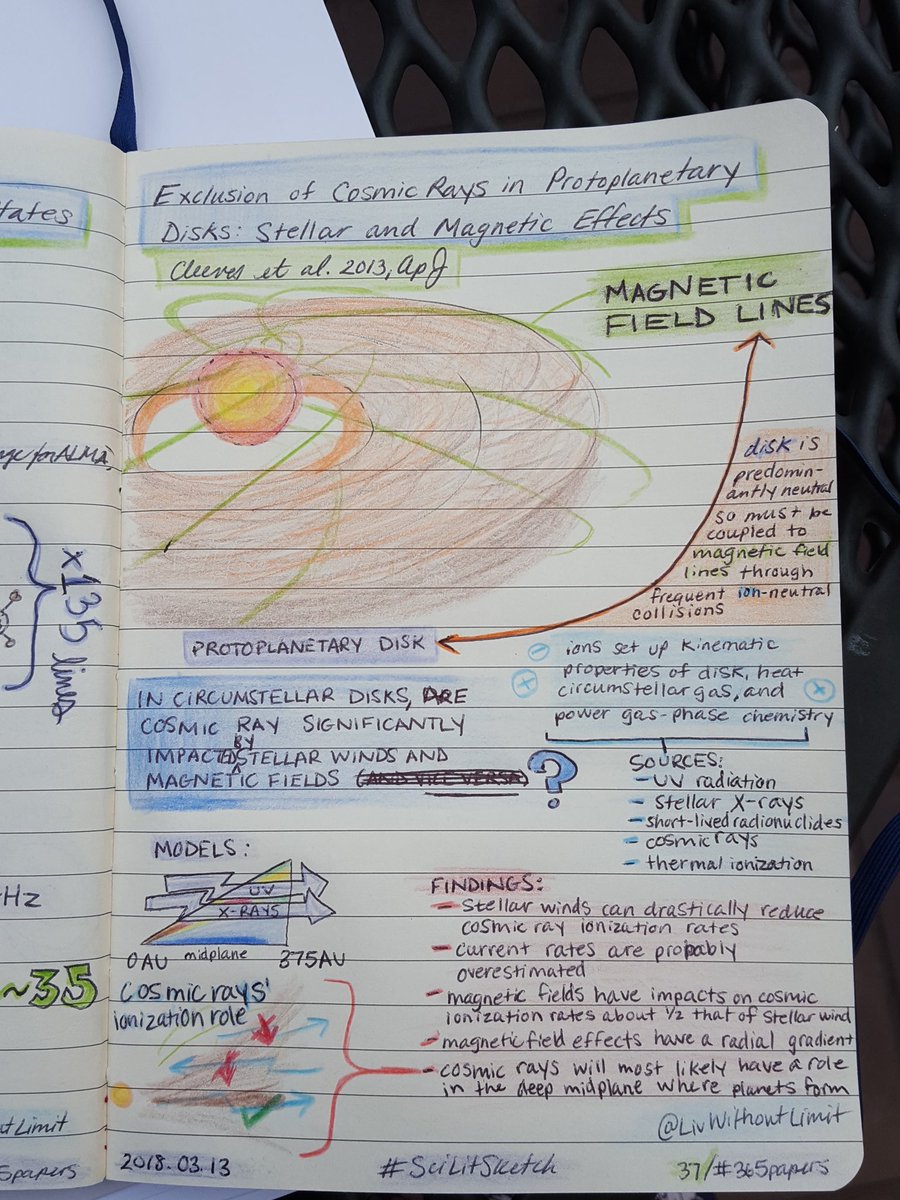 tates
ge for ALMA,
x135 lines
Hz
~35
outLimit
5papers
Exclusion of Cosmic Rays in Protoplanetary
Disks: Stellar and Magnetic Effects
Cleeves et al. 2013, ApJ
MAGNETIC
FIELD LINES
disk is
predomin-
antly neutral
so must be
coupled to
magnetic field
lines through
frequent ion-neutral
collisions
PROTOPLANETARY DISK
ions set up kinematic
properties of disk, heat
circumstellar gas, and
power gas-phase chemistry
IN CIRCUMSTELLAR DISKS, ARE
COSMIC RAY SIGNIFICANTLY
IMPACTED BY STELLAR WINDS AND
MAGNETIC FIELDS (AND VICE VERSA) ?
SOURCES:
- UV radiation
- Stellar X-rays
- short-lived radionuclides
- cosmic rays
- thermal ionization
MODELS:
UV
X-RAYS
0AU midplane 375AU
cosmic rays'
ionization role
FINDINGS:
- Stellar winds can drastically reduce
cosmic ray ionization rates
- current rates are probably
overestimated
- magnetic fields have impacts on cosmic
ionization rates about 1/2 that of stellar wind
- magnetic field effects have a radial gradient
- cosmic rays will most likely have a role
in the deep midplane where planets form
@LivWithoutLimit
2018.03.13
#SciLitSketch
37/#365papers